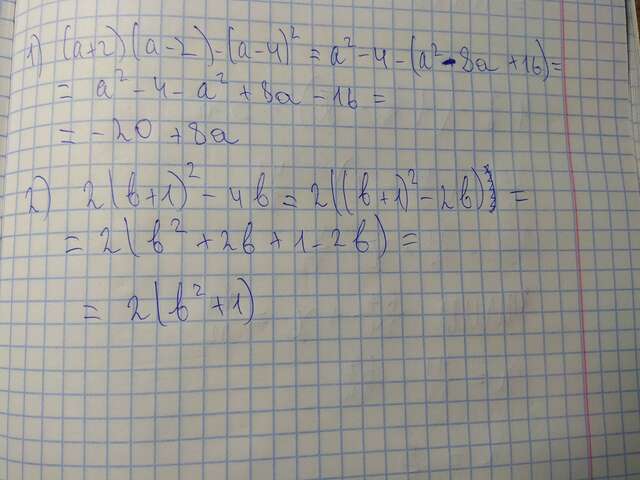 1) (a+2)(a-2)-(a-4)² = a²-4-(a²-8a+16)=
= a²-4-a²+8a-16=
= -20+8a
2) 2(b+1)²-4b = 2((b+1)²-2b) =
= 2(b²+2b+1-2b) =
= 2(b²+1)